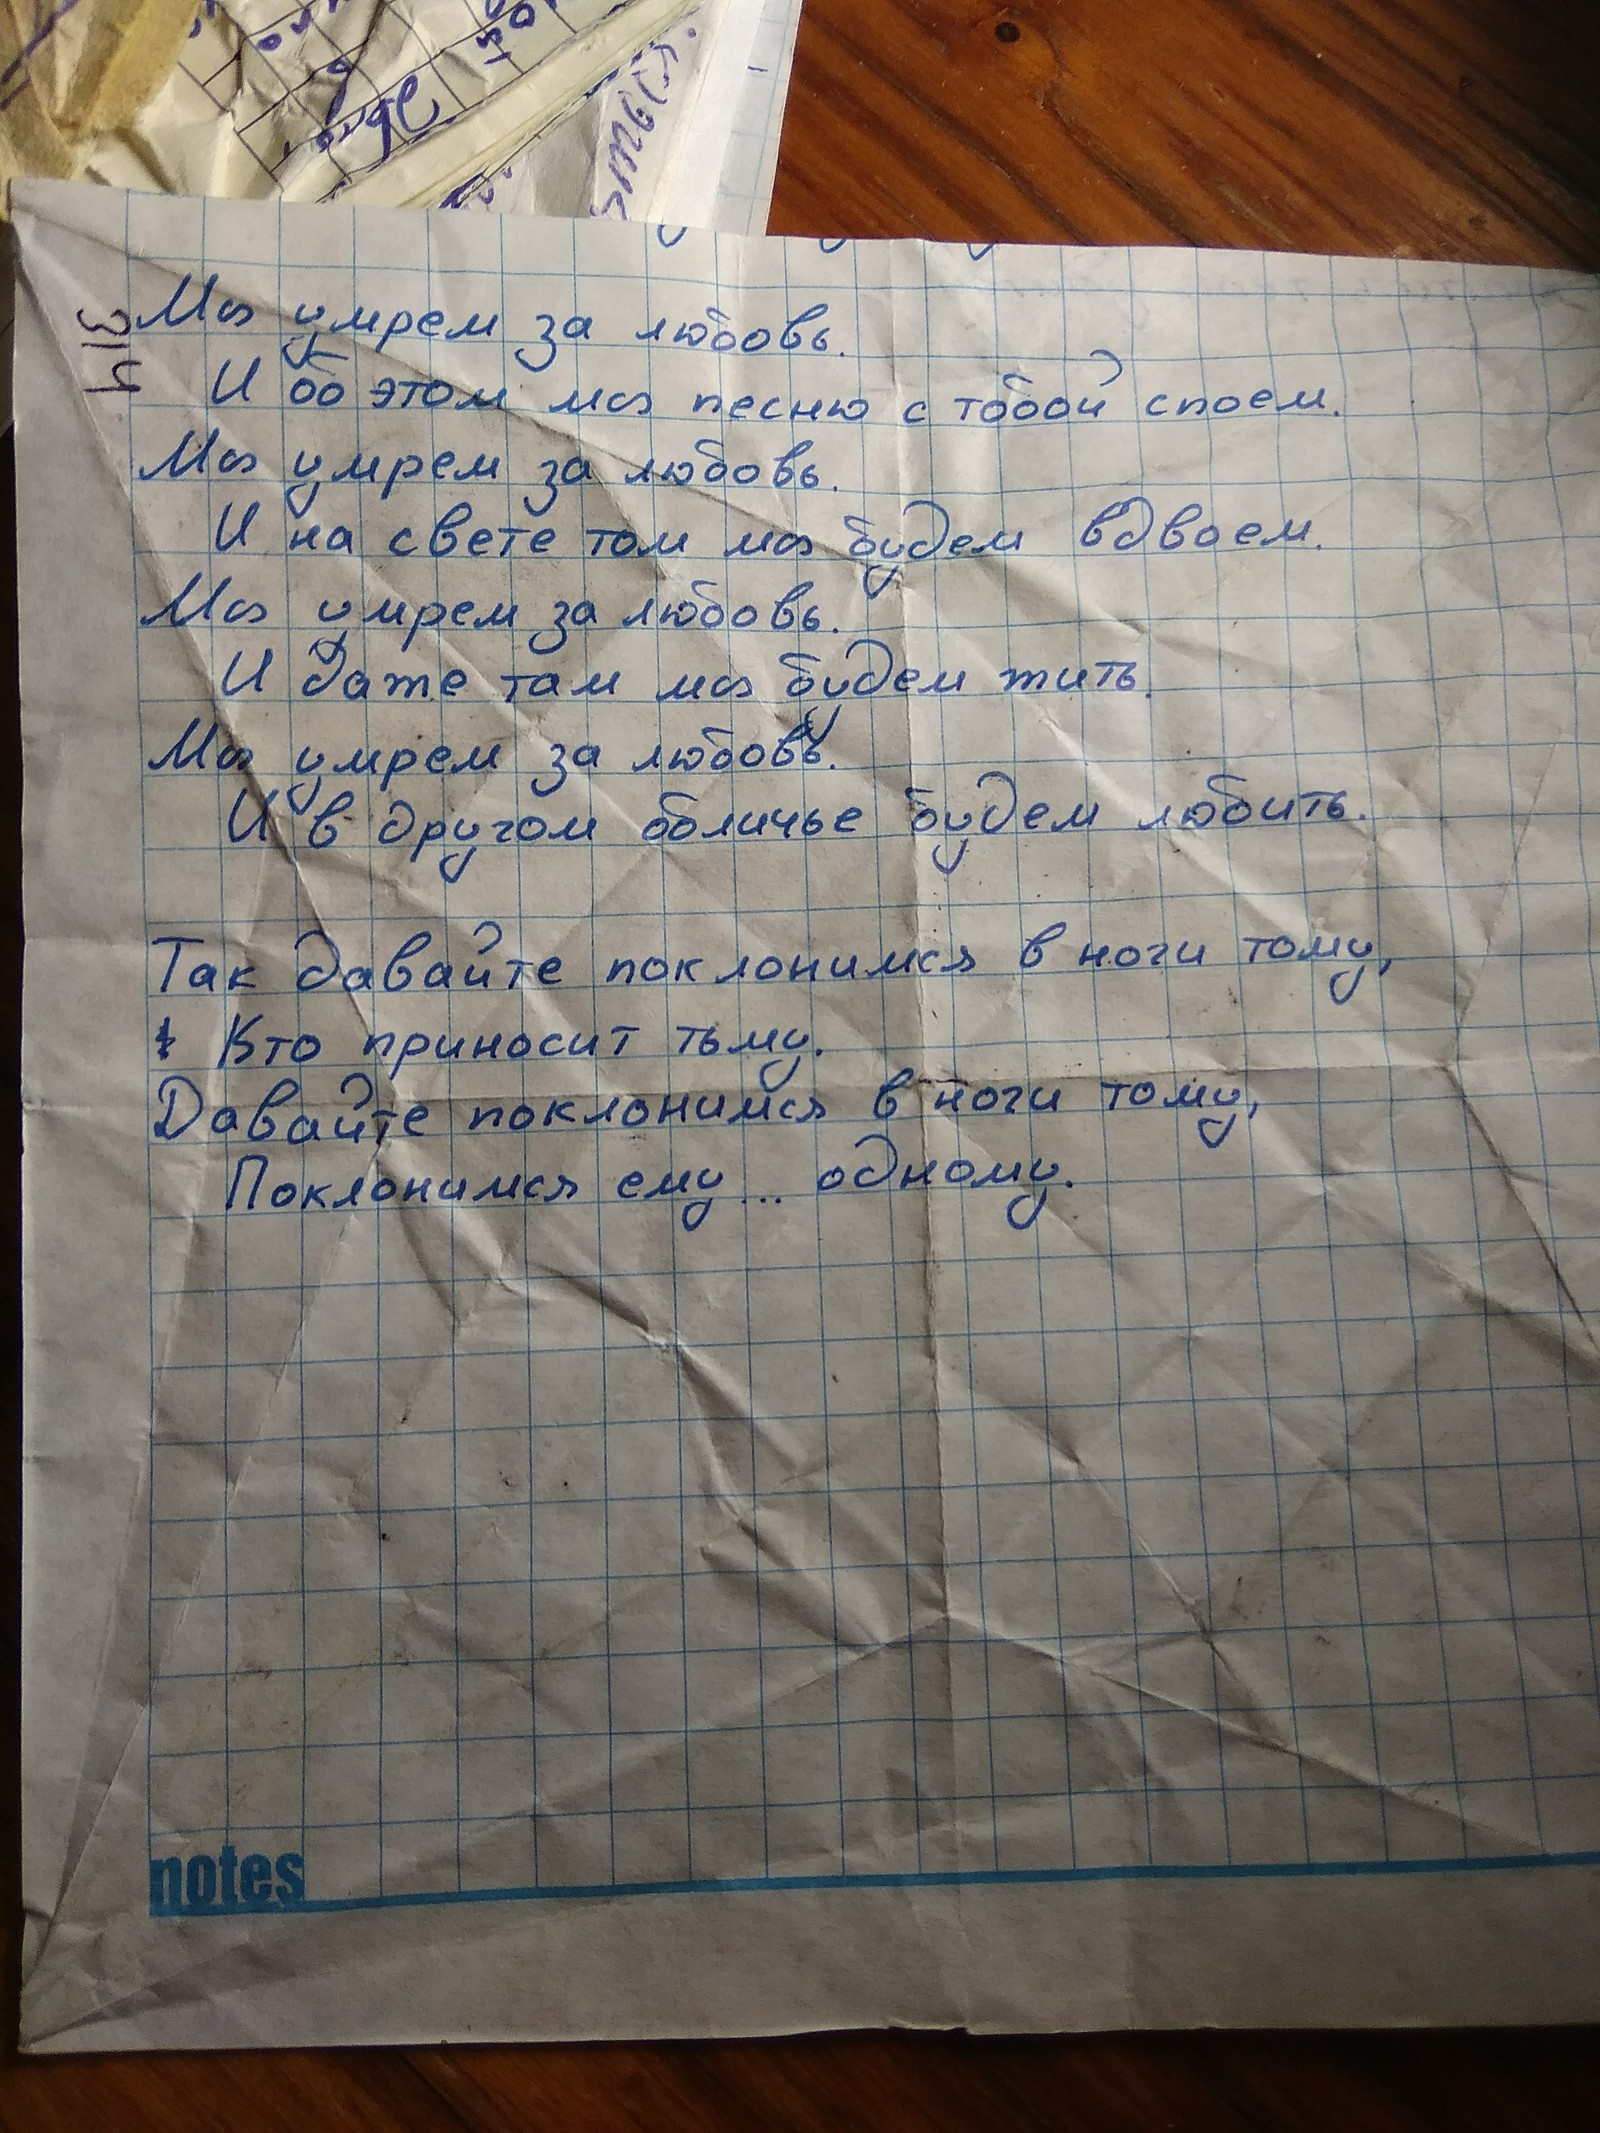 Мы умрем за любовь.
И об этом мы песню с тобой споем.
Мы умрем за любовь.
И на свете том мы будем вдвоем.
Мы умрем за любовь.
И даже там мы будем жить.
Мы умрем за любовь.
И в другом обличье будем любить.
Так давайте поклонимся в ноги тому,
Кто приносит тьму.
Давайте поклонимся в ноги тому,
Поклонимся ему... одному.
notes